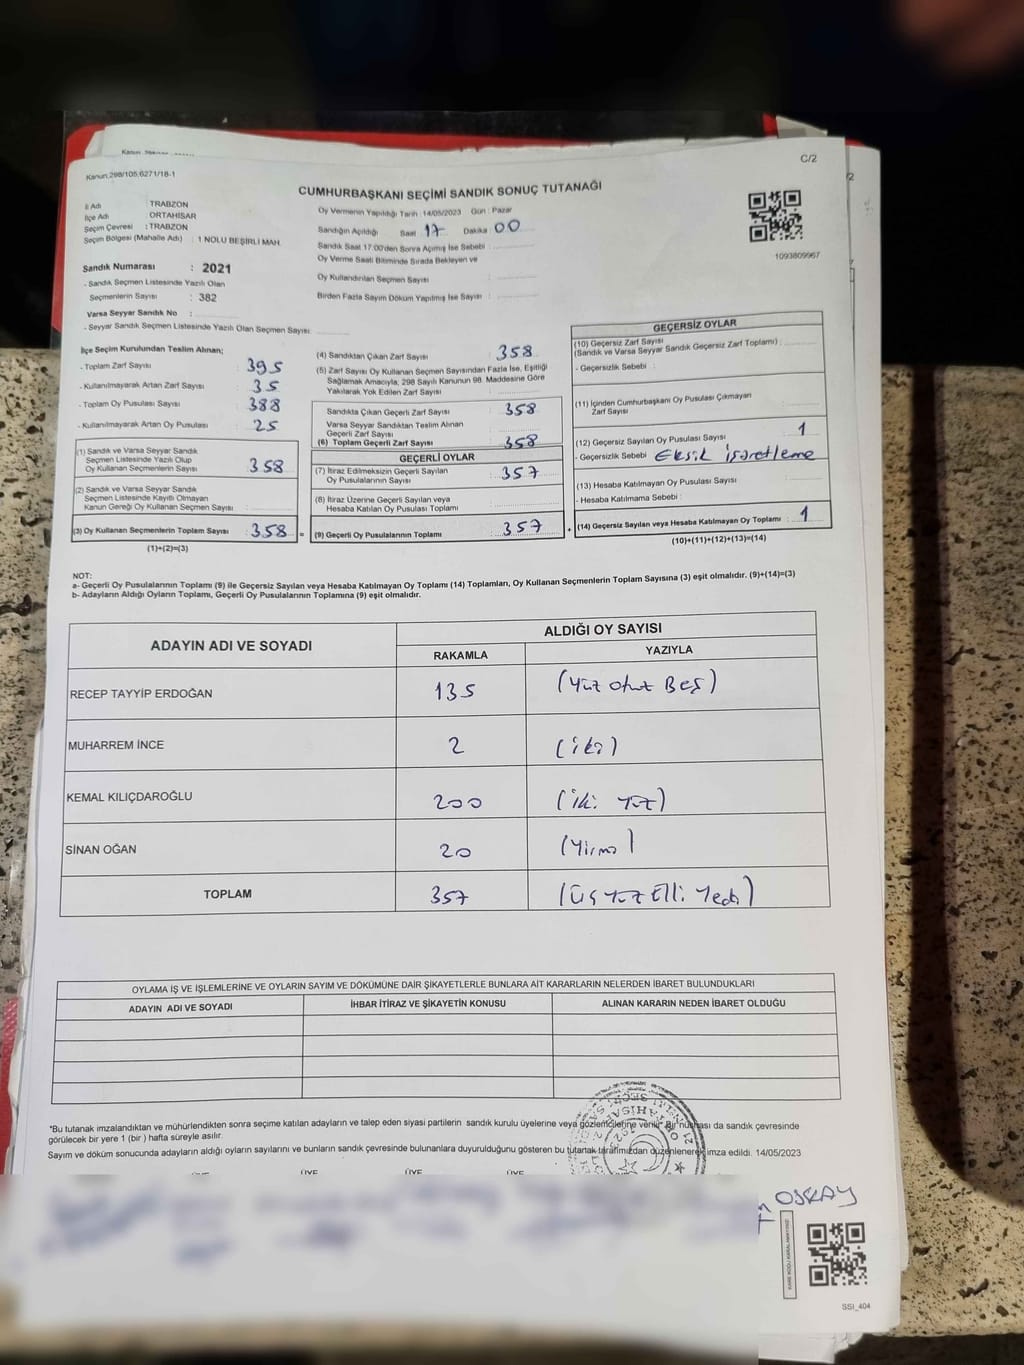 C/2
Kanun:298/105;6271/18-1
CUMHURBAŞKANI SEÇİMİ SANDIK SONUÇ TUTANAĞI
İl Adı : TRABZON
İlçe Adı : ORTAHİSAR
Seçim Çevresi : TRABZON
Seçim Bölgesi (Mahalle Adı) : 1 NOLU BEŞİRLİ MAH.
Sandık Numarası : 2021
- Sandık Seçmen Listesinde Yazılı Olan
Seçmenlerin Sayısı : 382
Varsa Seyyar Sandık No :
- Seyyar Sandık Seçmen Listesinde Yazılı Olan Seçmen Sayısı:
Oy Vermenin Yapıldığı Tarih : 14/05/2023 Gün : Pazar
Sandığın Açıldığı Saat 17 Dakika 00
Sandık Saat 17:00'den Sonra Açılmış İse Sebebi :
Oy Verme Saati Bitiminde Sırada Bekleyen ve
Oy Kullandırılan Seçmen Sayısı :
Birden Fazla Sayım Döküm Yapılmış İse Sayısı :
1093809967
İlçe Seçim Kurulundan Teslim Alınan;
- Toplam Zarf Sayısı : 395
- Kullanılmayarak Artan Zarf Sayısı : 35
- Toplam Oy Pusulası Sayısı : 388
- Kullanılmayarak Artan Oy Pusulası : 25
(1) Sandık ve Varsa Seyyar Sandık
Seçmen Listesinde Yazılı Olup
Oy Kullanan Seçmenlerin Sayısı : 358
(2) Sandık ve Varsa Seyyar Sandık
Seçmen Listesinde Kayıtlı Olmayan
Kanun Gereği Oy Kullanan Seçmen Sayısı :
(3) Oy Kullanan Seçmenlerin Toplam Sayısı : 358 =
(1)+(2)=(3)
(4) Sandıktan Çıkan Zarf Sayısı : 358
(5) Zarf Sayısı Oy Kullanan Seçmen Sayısından Fazla İse, Eşitliği
Sağlamak Amacıyla; 298 Sayılı Kanunun 98. Maddesine Göre
Yakılarak Yok Edilen Zarf Sayısı :
Sandıkta Çıkan Geçerli Zarf Sayısı : 358
Varsa Seyyar Sandıktan Teslim Alınan
Geçerli Zarf Sayısı :
(6) Toplam Geçerli Zarf Sayısı : 358
GEÇERLİ OYLAR
(7) İtiraz Edilmeksizin Geçerli Sayılan
Oy Pusulalarının Sayısı : 357
(8) İtiraz Üzerine Geçerli Sayılan veya
Hesaba Katılan Oy Pusulası Toplamı :
(9) Geçerli Oy Pusulalarının Toplamı : 357 +
GEÇERSİZ OYLAR
(10) Geçersiz Zarf Sayısı
(Sandık ve Varsa Seyyar Sandık Geçersiz Zarf Toplamı) :
- Geçersizlik Sebebi :
(11) İçinden Cumhurbaşkanı Oy Pusulası Çıkmayan
Zarf Sayısı :
(12) Geçersiz Sayılan Oy Pusulası Sayısı : 1
- Geçersizlik Sebebi Eksik işaretleme
(13) Hesaba Katılmayan Oy Pusulası Sayısı :
- Hesaba Katılmama Sebebi :
(14) Geçersiz Sayılan veya Hesaba Katılmayan Oy Toplamı : 1
(10)+(11)+(12)+(13)=(14)
NOT:
a- Geçerli Oy Pusulalarının Toplamı (9) ile Geçersiz Sayılan veya Hesaba Katılmayan Oy Toplamı (14) Toplamları, Oy Kullanan Seçmenlerin Toplam Sayısına (3) eşit olmalıdır. (9)+(14)=(3)
b- Adayların Aldığı Oyların Toplamı, Geçerli Oy Pusulalarının Toplamına (9) eşit olmalıdır.
ADAYIN ADI VE SOYADI
ALDIĞI OY SAYISI
RAKAMLA YAZIYLA
RECEP TAYYİP ERDOĞAN 135 (Yüz otuz Beş)
MUHARREM İNCE 2 (iki)
KEMAL KILIÇDAROĞLU 200 (iki Yüz)
SİNAN OĞAN 20 (Yirmi)
TOPLAM 357 (Üç Yüz Elli Yedi)
OYLAMA İŞ VE İŞLEMLERİNE VE OYLARIN SAYIM VE DÖKÜMÜNE DAİR ŞİKAYETLERLE BUNLARA AİT KARARLARIN NELERDEN İBARET BULUNDUKLARI
ADAYIN ADI VE SOYADI İHBAR İTİRAZ VE ŞİKAYETİN KONUSU ALINAN KARARIN NEDEN İBARET OLDUĞU
"Bu tutanak imzalandıktan ve mühürlendikten sonra seçime katılan adayların ve talep eden siyasi partilerin sandık kurulu üyelerine veya gözlemcilerine verilir. Bir nüshası da sandık çevresinde
görülecek bir yere 1 (bir ) hafta süreyle asılır.
Sayım ve döküm sonucunda adayların aldığı oyların sayılarını ve bunların sandık çevresinde bulunanlara duyurulduğunu gösteren bu tutanak tarafımızdan düzenlenerek imza edildi. 14/05/2023
ÜYE ÜYE ÜYE
OSKAY
SSI_404